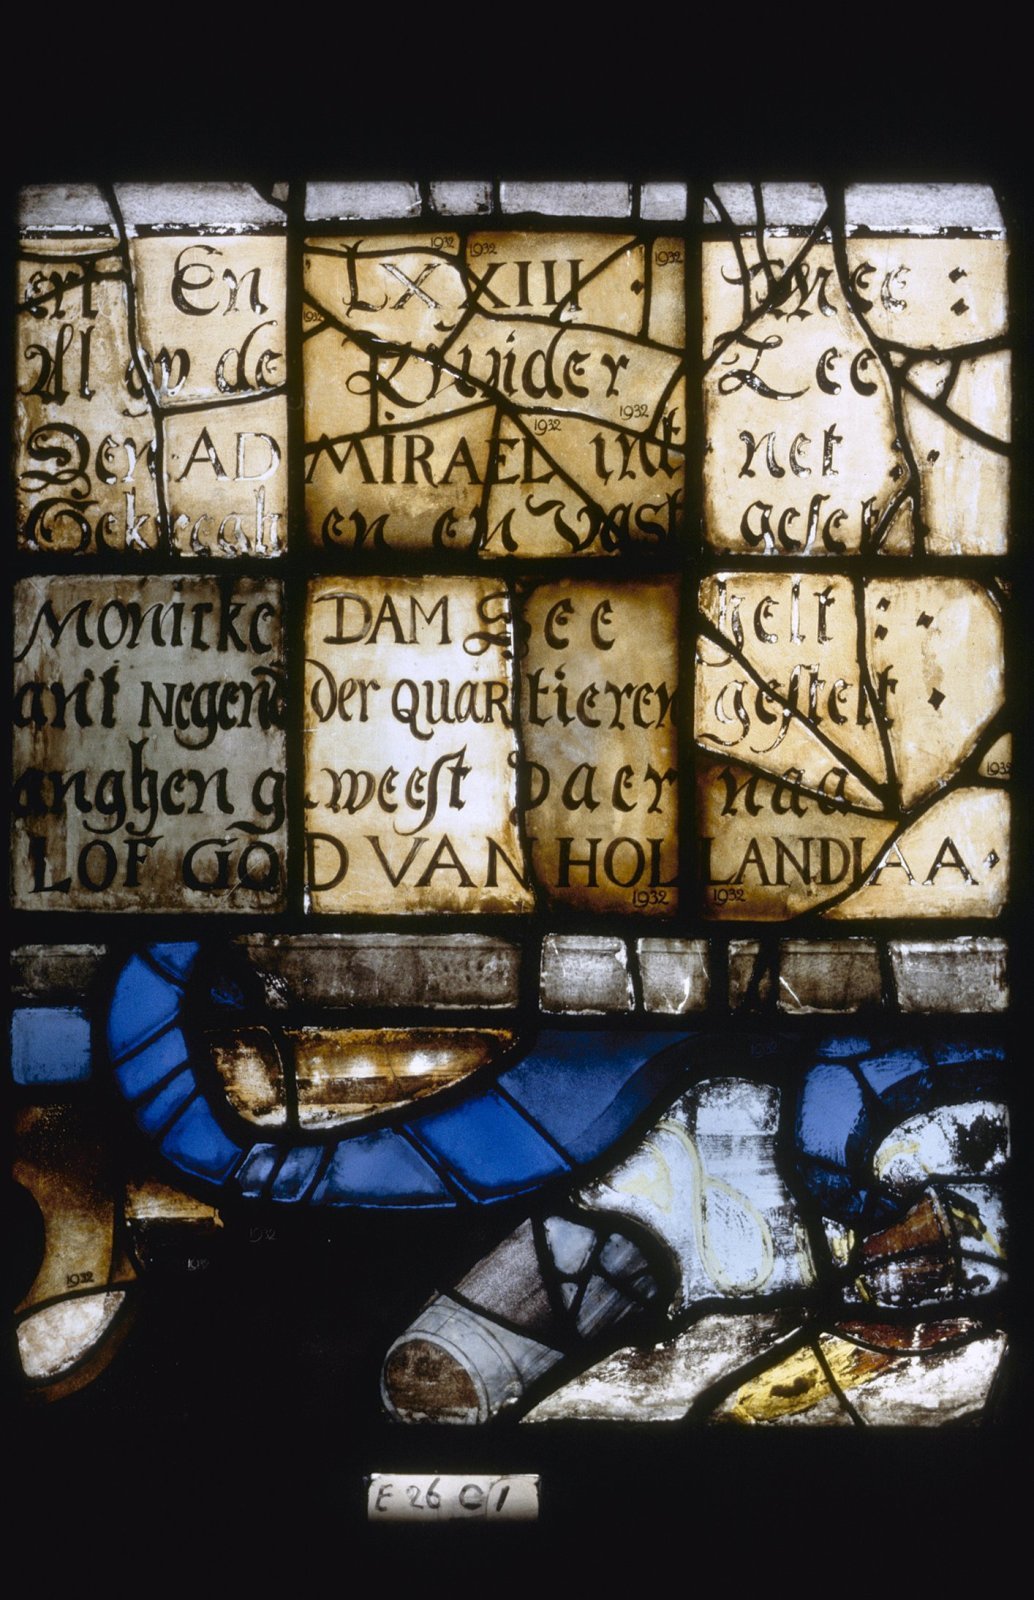 ert En LXXIII : Mee :
Al op de Zuider Zee
Den ADMIRAEL int net :
Gekreegh en en vast geset
MONICKEDAM See helt :
ant Negend der QUARtieren gestelt
anghen geweest Daer naa
LOF GOD VAN HOLLANDIAA
1932 1932 1932
1932
1932
1932
1932
1932 1932
1932
1932
1932
E 26 C 1